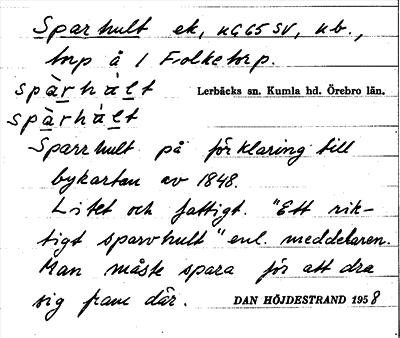 Sparhult ek, UG65SV, ub.,
torp å 1 Folketorp.
spàrhàlt Lerbäcks sn. Kumla hd. Örebro län.
spàrhàlt
Sparrhult på förklaring till
bykartan av 1848.
Litet och fattigt. "Ett rik-
tigt sparvhult" enl. meddelaren.
Man måste spara för att dra
sig fram där. DAN HÖJDESTRAND 1958